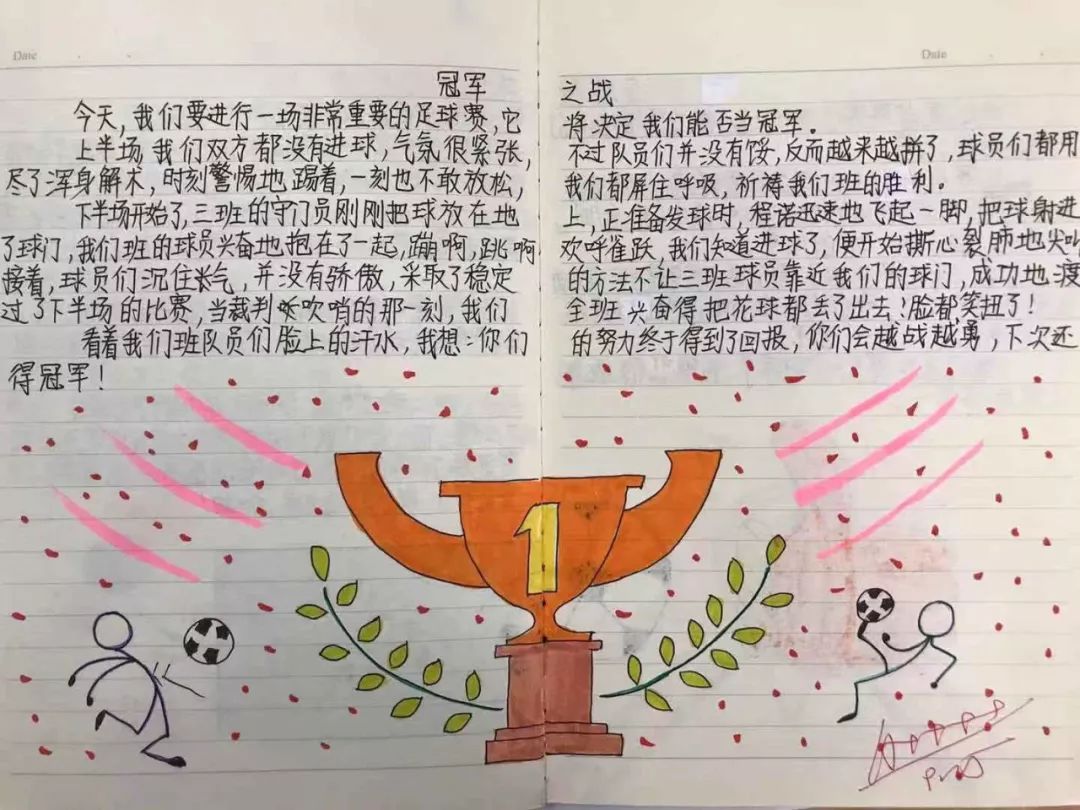 Date Date
冠军之战
今天，我们要进行一场非常重要的足球赛，它将决定我们能否当冠军。
上半场，我们双方都没有进球，气氛很紧张，不过队员们并没有馁，反而越来越拼了，球员们都用
尽了浑身解术，时刻警惕地踢着，一刻也不敢放松，我们都屏住呼吸，祈祷我们班的胜利。
下半场开始了，三班的守门员刚刚把球放在地上，正准备发球时，程诺迅速地飞起一脚，把球射进
了球门，我们班的球员兴奋地抱在了一起，蹦啊，跳啊，欢呼雀跃，我们知道进球了，便开始撕心裂肺地尖叫
接着，球员们沉住气，并没有骄傲，采取了稳定的方法不让三班球员靠近我们的球门，成功地渡
过了下半场的比赛，当裁判吹哨的那一刻，我们全班兴奋得把花球都丢了出去！脸都笑扭了！
看着我们班队员们脸上的汗水，我想：你们的努力终于得到了回报，你们会越战越勇，下次还
得冠军！
1